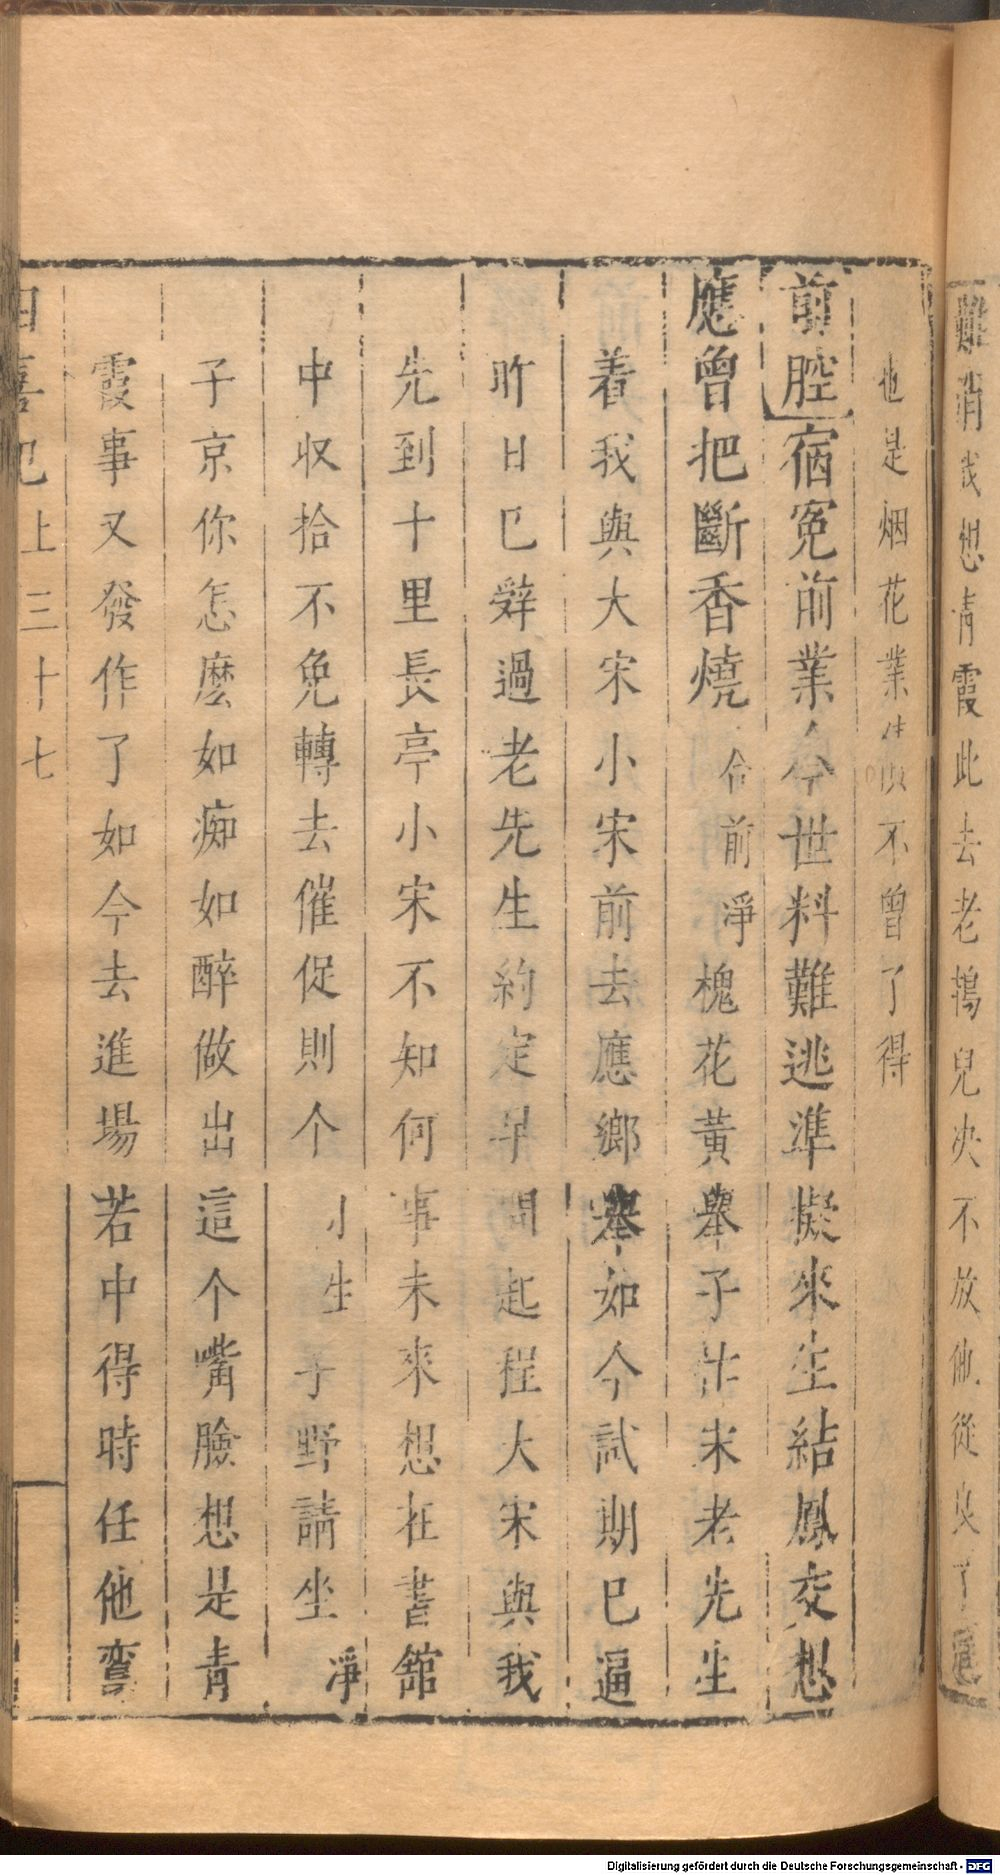 難消我想青霞此去老鴇兒决不放他從良了
也是烟花業 不曾了得
前腔宿寃前業今世料難逃準擬來生結鳳交想
應曾把斷香燒 合前 淨 槐花黃舉子忙末老先生
着我與大宋小宋前去應鄉舉如今試期巳逼
昨日巳辭過老先生約定早間起程大宋與我
先到十里長亭小宋不知何事未來想在書舘
中収拾不免轉去催促則个 小生 子野請坐 淨
子京你怎麽如痴如醉做出這个嘴臉想是青
霞事又發作了如今去進場若中得時任他鸞
四喜記上三十七
Digitalisierung gefördert durch die Deutsche Forschungsgemeinschaft - DFG